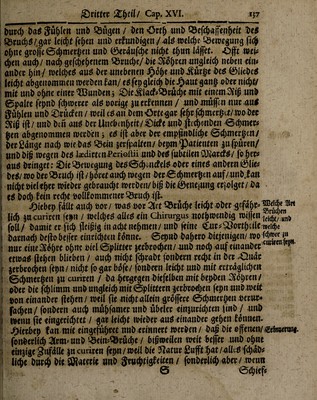 Dritter Theil/ Cap. XVI. 137
durch das Fühlen und Bügen / den Orth und Beschaffenheit des
Bruchs / gar leicht sehen und erkundigen / als welche Bewegung sich
ohne grosse Schmertzen und Geräusche nicht thun lässet. Offt wei-
chen auch / nach geschehenem Bruche / die Röhren ungleich neben ein-
ander hin / welches aus der unebenen Höhe und Kürtze des Gliedes
leicht abgenommen werden kan / es sey gleich die Haut gantz oder nicht/
mit und ohne einer Wunden; Die Klack-Brüche mit einem Riß und
Spalte seynd schwerer als vorige zu erkennen / und müssen nur aus
Fühlen und Drücken / weil es an dem Orte gar sehr schmertzet / wo der
Riß ist / und deñ aus der Unebenheit / Dicke und stechenden Schmer-
tzen abgenommen werden; es ist aber der empfindliche Schmertzen /
der Länge nach wie das Bein zerspalten / beym Patienten zu spüren /
und diß wegen des lædirten Periostii und des subtilen Marcks / so her-
aus dringet: Die Bewegung des Schenckels oder eines andern Glie-
des / wo der Bruch ist / höret auch wegen der Schmertzen auf / und kan
nicht viel eher wieder gebraucht werden / biß die Genesung erfolget / da
es doch kein recht vollkommener Bruch ist.
Hierbey fället auch vor / was vor Art Brüche leicht oder gefähr-
lich zu curiren seyn / welches alles ein Chirurgus nothwendig wissen
soll / damit er sich fleißig in acht nehmen / und seine Cur-Vortheile
darnach desto besser einrichten könne. Seynd dahero diejenigen / wo
nur eine Röhre ohne viel Splitter zerbrochen / und noch auf einander
etwas stehen blieben / auch nicht schradt sondern recht in der Quär
zerbrochen seyn / nicht so gar böse / sondern leicht und mit erträglichen
Schmertzen zu curiren / da hergegen dieselben mit beyden Röhren /
oder die schlimm und ungleich mit Splittern zerbrochen seyn und weit
von einander stehen / weil sie nicht allein grössere Schmertzen verur-
sachen / sondern auch mühsamer und übeler einzurichten sind / und
wenn sie eingerichtet / gar leicht wieder aus einander gehen können.
Hierbey kan mit eingeführet und erinnert werden / daß die offenen/
sonderlich Arm- und Bein-Brüche / bißweilen weit besser und ohne
einzige Zufälle zu curiren seyn / weil die Natur Lufft hat / alles schäd-
liche durch die Materie und Feuchtigkeiten / sonderlich aber / wenn
S Schiefe
Welche Art
Brüchen
leicht / und
welche
schwer zu
curiren seyn.
Erinnerung.